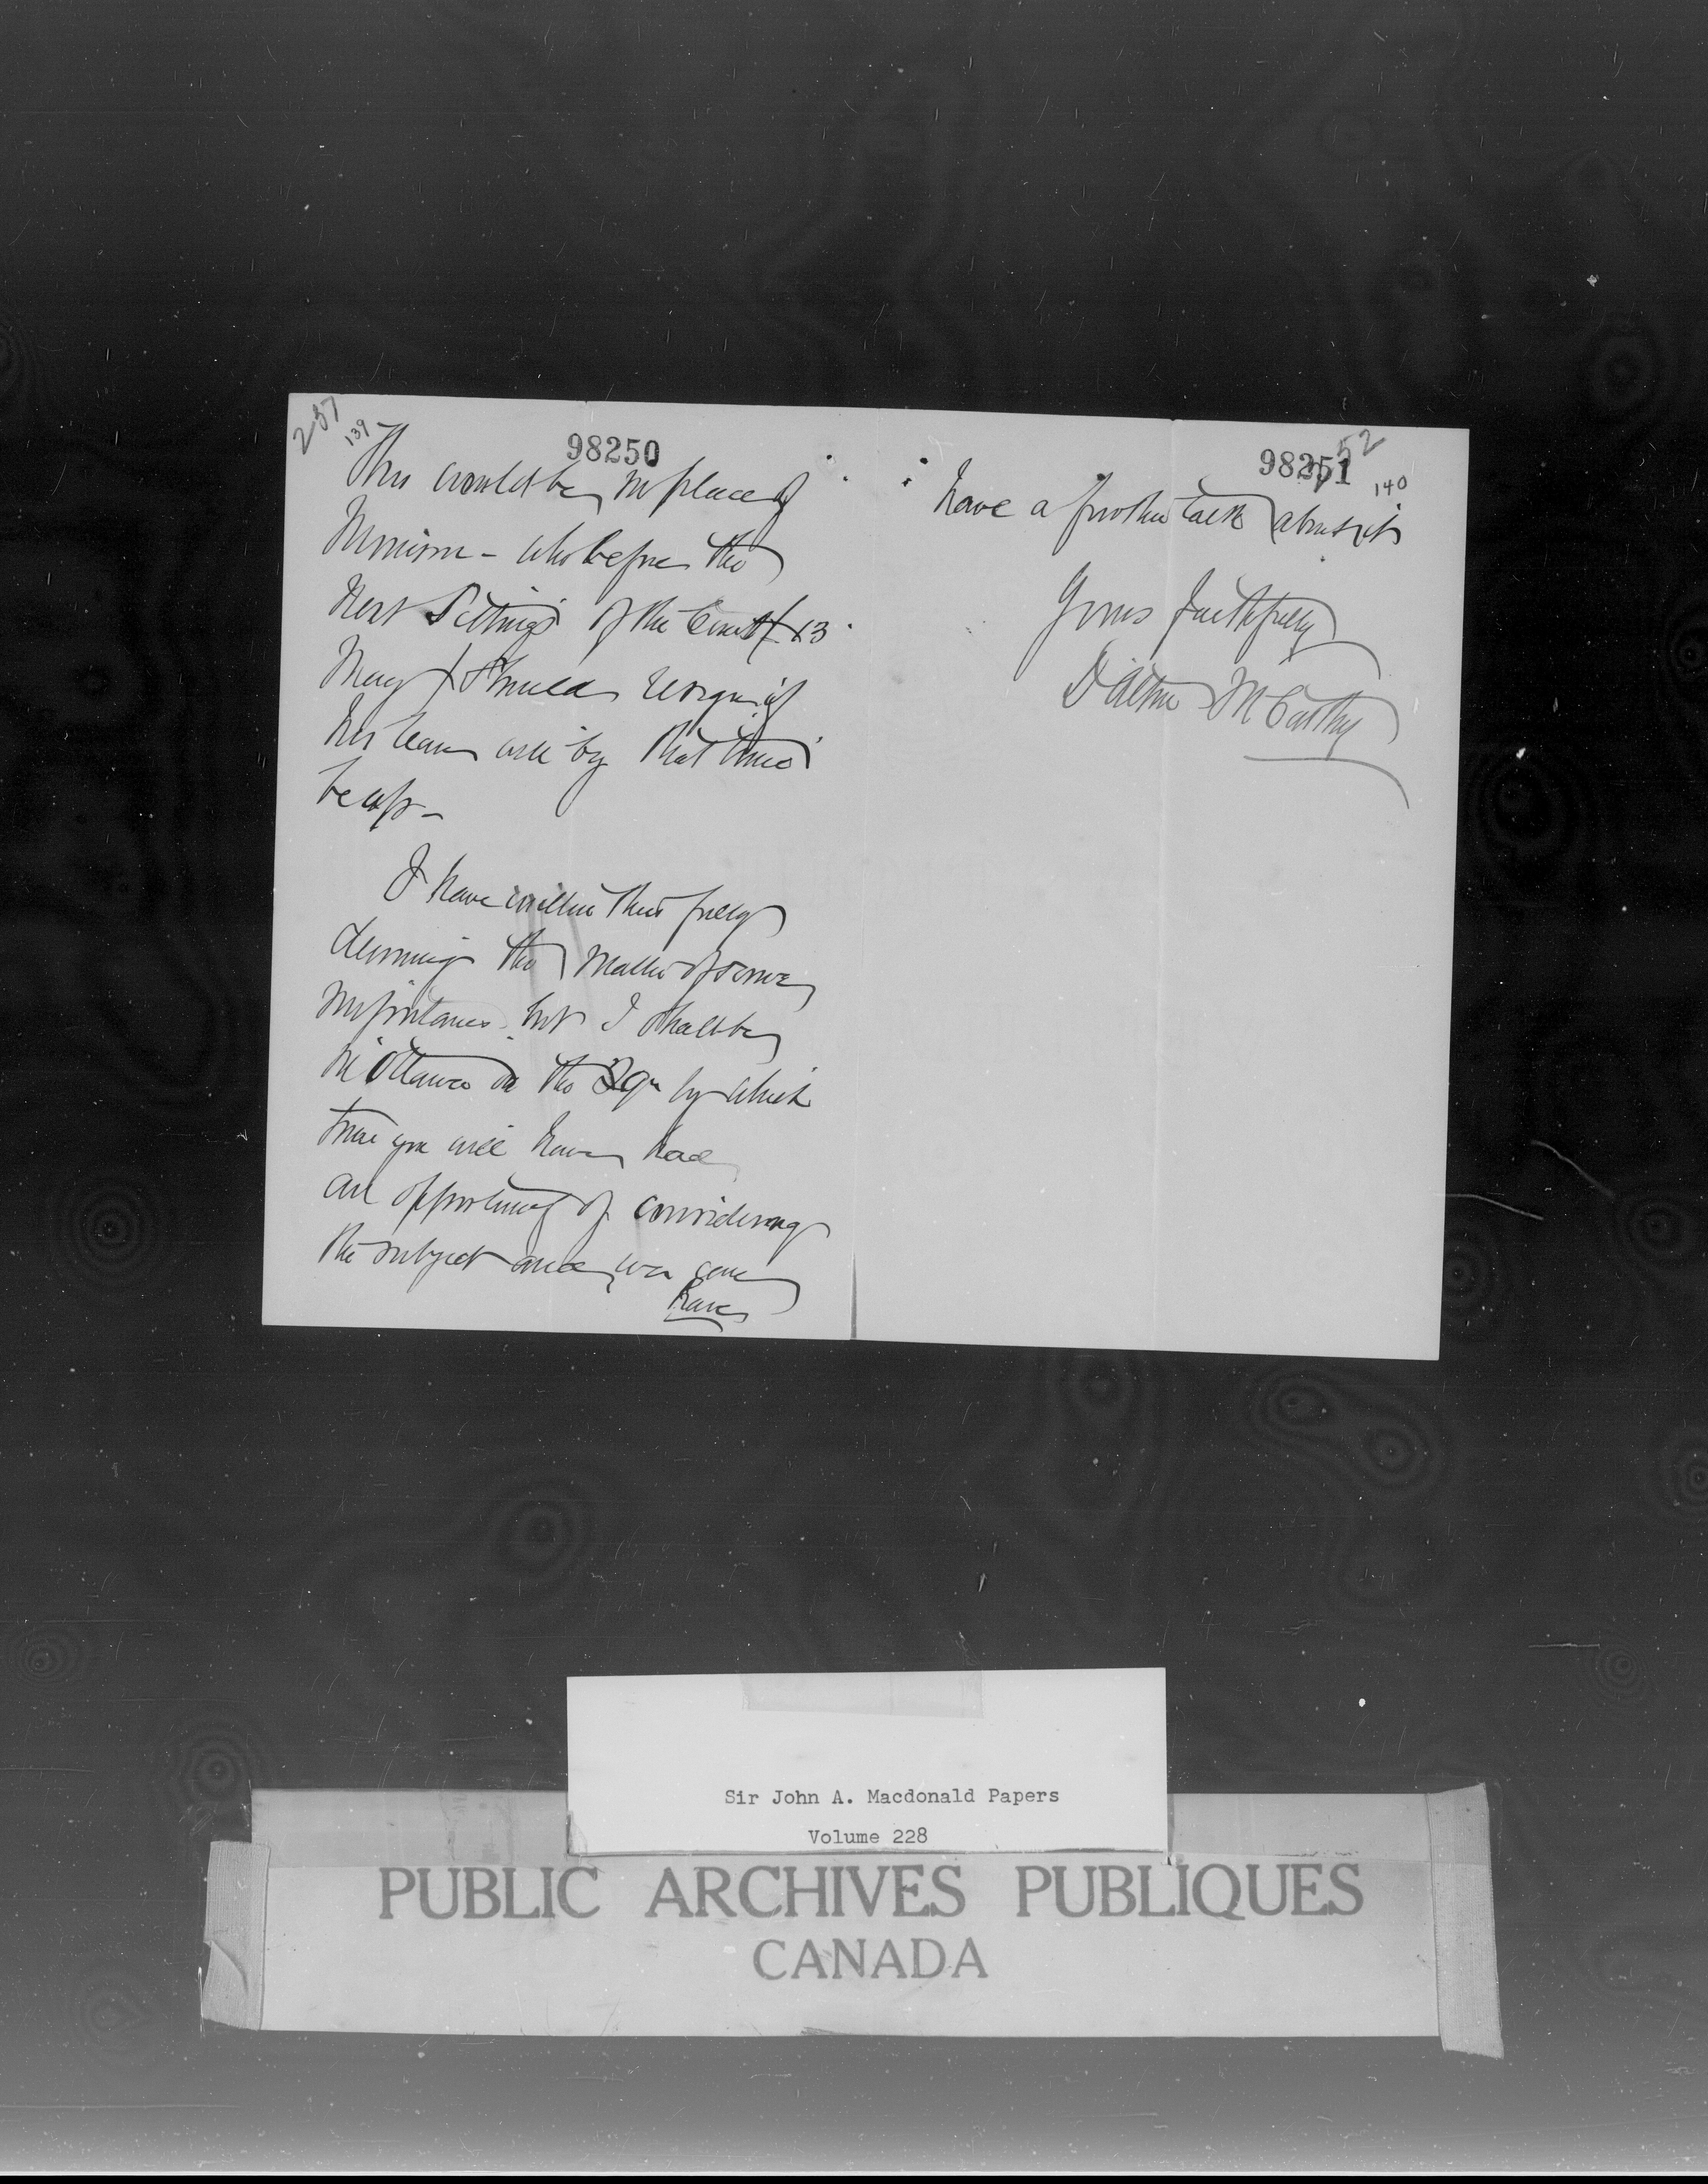 237
139
98250
This would be in place of
Morrison - who before the
next Sittings of the Court (13
May) should resign if
his leave will by that time
be up -
I have written thus fully
deeming the matter of some
importance but I shall be
in Ottawa on the 29th by which
time you will have had
an opportunity of considering
the subject and we can
have
98251
52
140
have a further talk about it
Yours faithfully
Dalton McCarthy
Sir John A. Macdonald Papers
Volume 228
PUBLIC ARCHIVES PUBLIQUES
CANADA